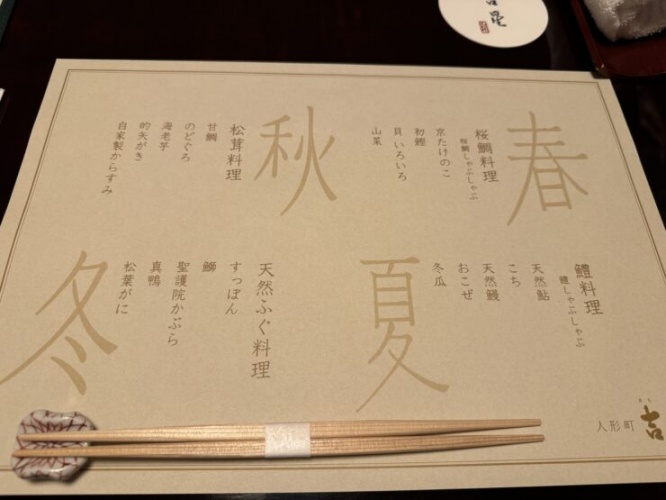 春
桜鯛料理
桜鯛しゃぶしゃぶ
京たけのこ
初鰹
貝いろいろ
山菜
夏
鱧料理
鱧しゃぶしゃぶ
天然鮎
こち
天然鰻
おこぜ
冬瓜
秋
松茸料理
甘鯛
のどぐろ
海老芋
的矢がき
自家製からすみ
冬
天然ふぐ料理
すっぽん
鰤
聖護院かぶら
真鴨
松葉がに
人形町
吉